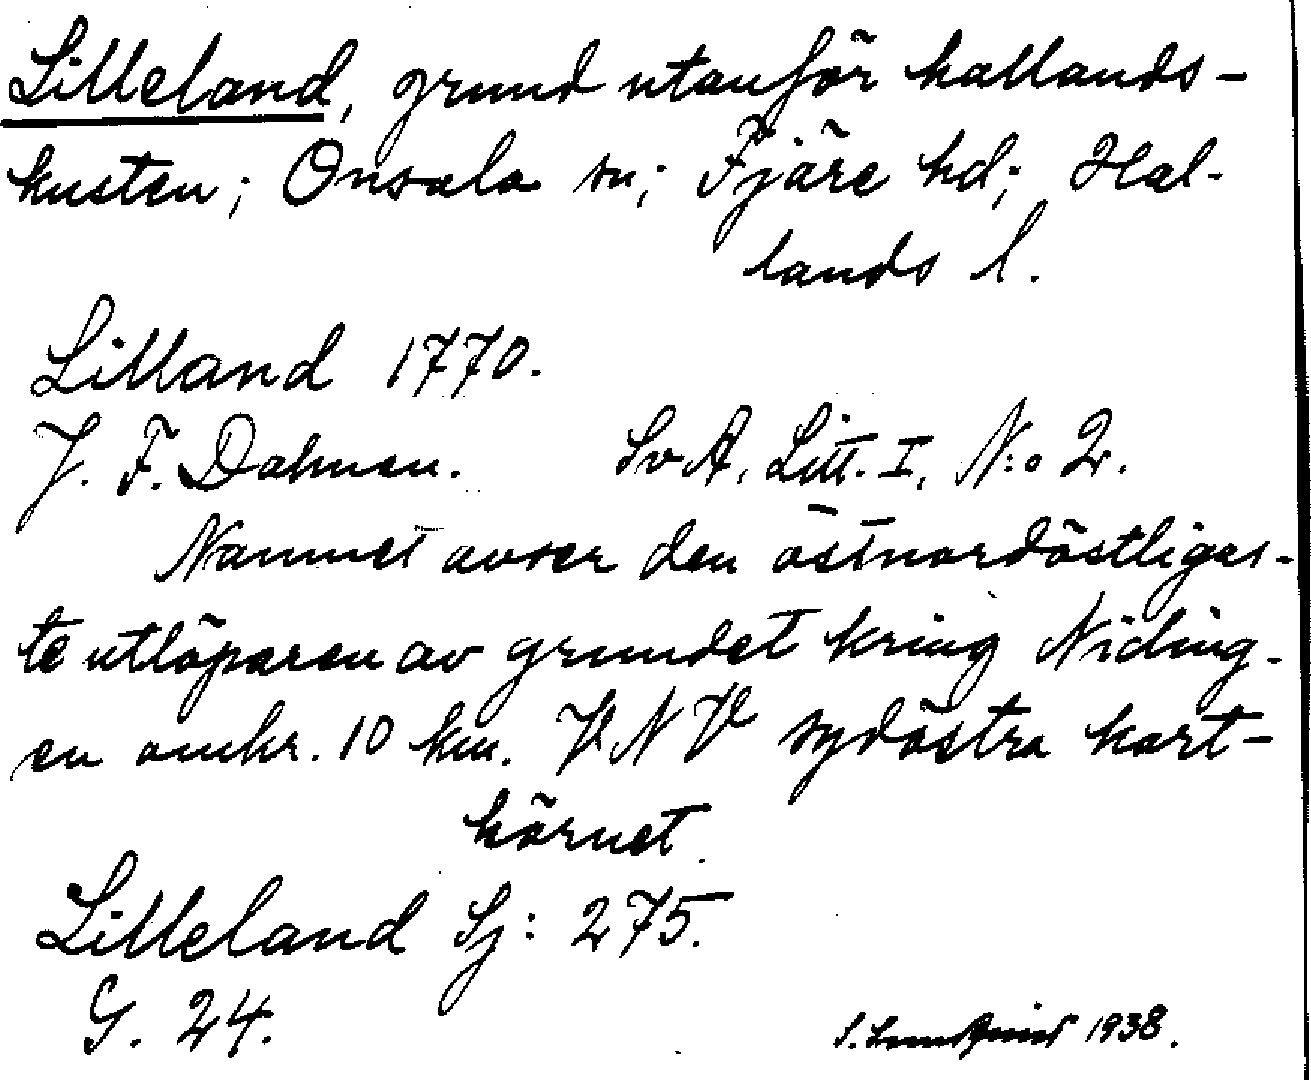 Lilleland, grund utanför hallands-
kusten; Onsala sn; Fjäre hd; Hal-
lands l.
Lilland 1770.
J. F. Dalmen. SvA, Litt. I, N:o 2.
Namnet avser den östnordöstligas-
te utlöparen av grundet kring Niding-
en omkr. 10 km. VNV sydöstra kart-
hörnet.
Lilleland Sj: 275.
G. 24.
S. Lundqvist 1938.